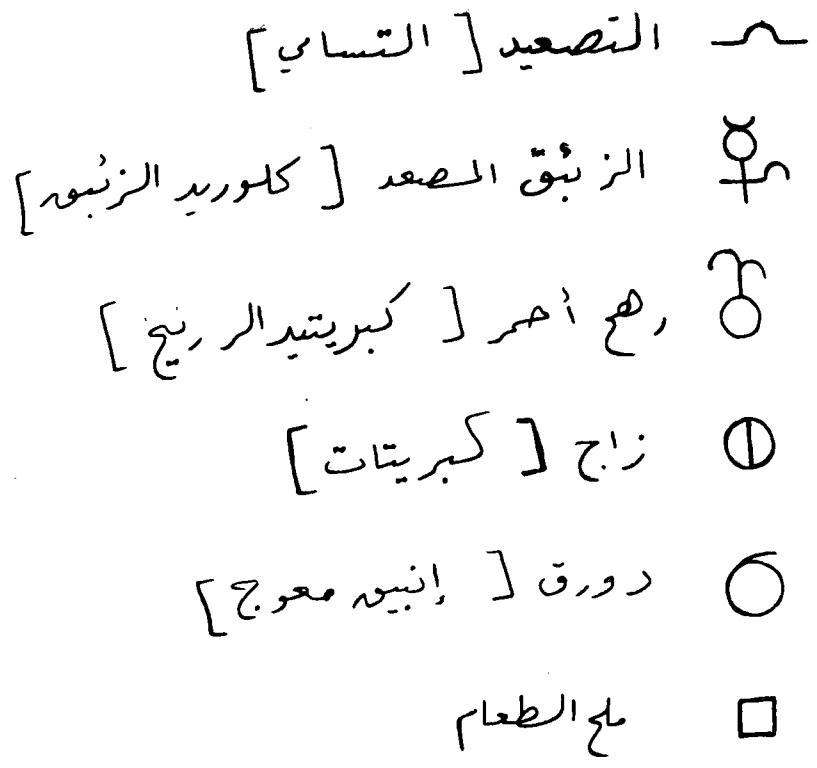 التصعيد [ التسامي ]
الزئبق المصعد [ كلوريد الزئبق ]
رهج أحمر [ كبريتيد الزرنيخ ]
زاج [ كبريتات ]
دورق [ إنبيق معوج ]
ملح الطعام